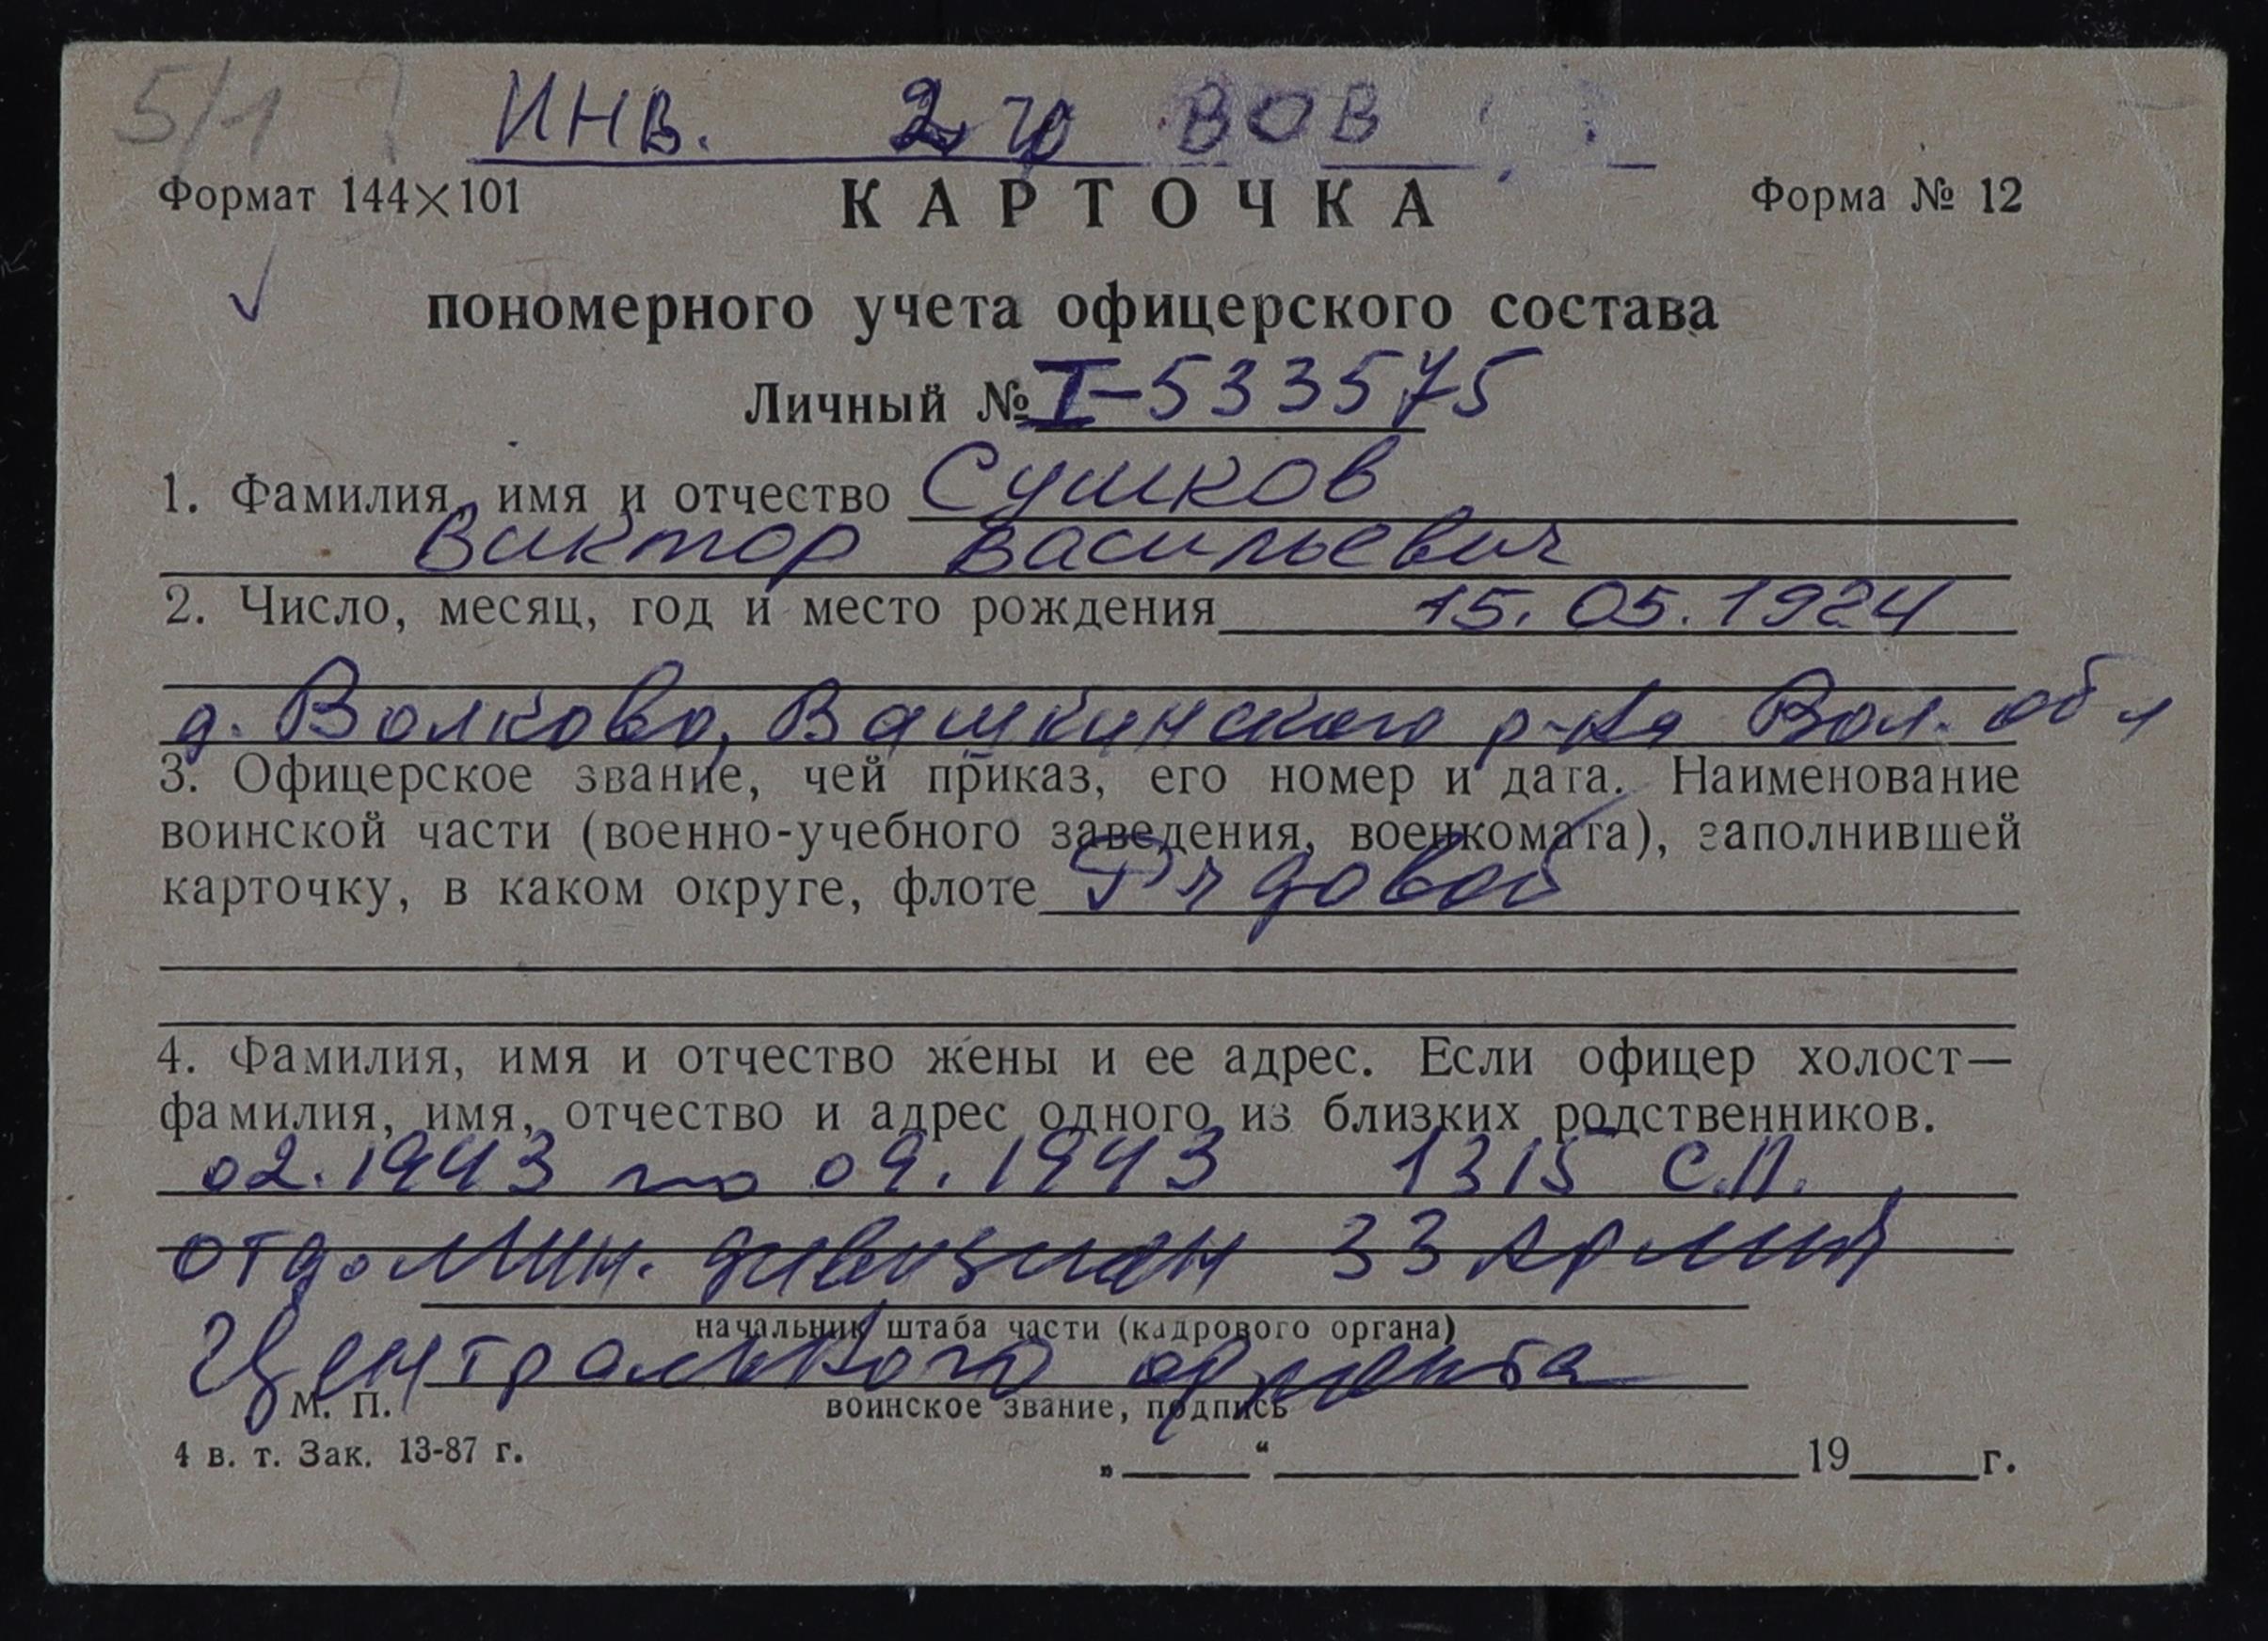 5/1
ИНВ. 2 гр ВОВ
Формат 144×101 КАРТОЧКА Форма № 12
пономерного учета офицерского состава
Личный № I-533575
1. Фамилия, имя и отчество Сушков
Виктор Васильевич
2. Число, месяц, год и место рождения 15.05.1924
д. Волково, Вашкинского р-на Вол. обл
3. Офицерское звание, чей приказ, его номер и дата. Наименование
воинской части (военно-учебного заведения, военкомата), заполнившей
карточку, в каком округе, флоте Рядовой
4. Фамилия, имя и отчество жены и ее адрес. Если офицер холост—
фамилия, имя, отчество и адрес одного из близких родственников.
02.1943 по 09.1943 1315 С.П.
отд. мин. дивизион 33 Армии
начальник штаба части (кадрового органа)
Центрального фронта
М. П. воинское звание, подпись
4 в. т. Зак. 13-87 г.
„ “ 19 г.